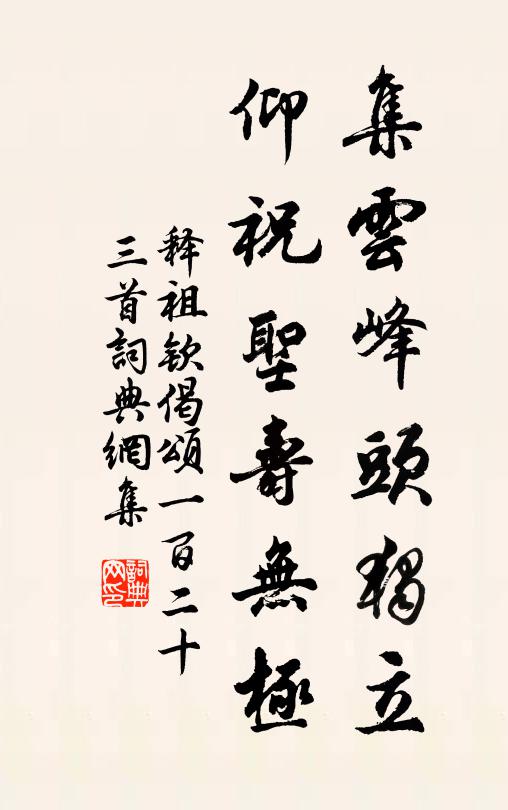 集雲峰頭獨立
仰祝聖壽無極
释祖欽偈頌一百二十
三首詞典網集
詞典网印